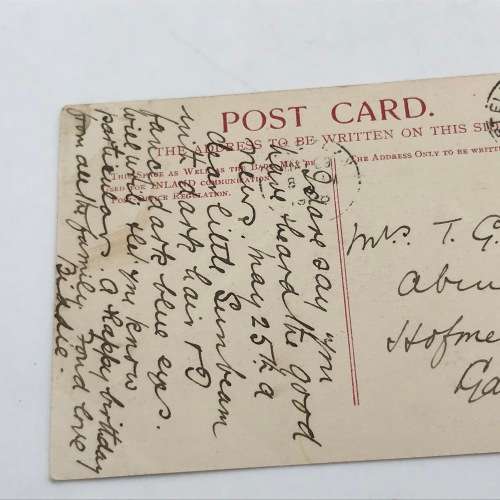 POST CARD.
THE ADDRESS TO BE WRITTEN ON THIS SI
THIS SPACE AS WELL AS THE BACK MAY BE
USED FOR INLAND COMMUNICATION.
POST OFFICE REGULATION.
THE ADDRESS ONLY TO BE WRITTEN
I dare say you
have heard the good
news. May 25th a
dear little Sunbeam
with dark hair & I
fancy dark blue eyes.
Will will let you know
particulars. A Happy birthday
from all the family. Fond love
Biddie.
Mrs T. G.
Hofme
Ga